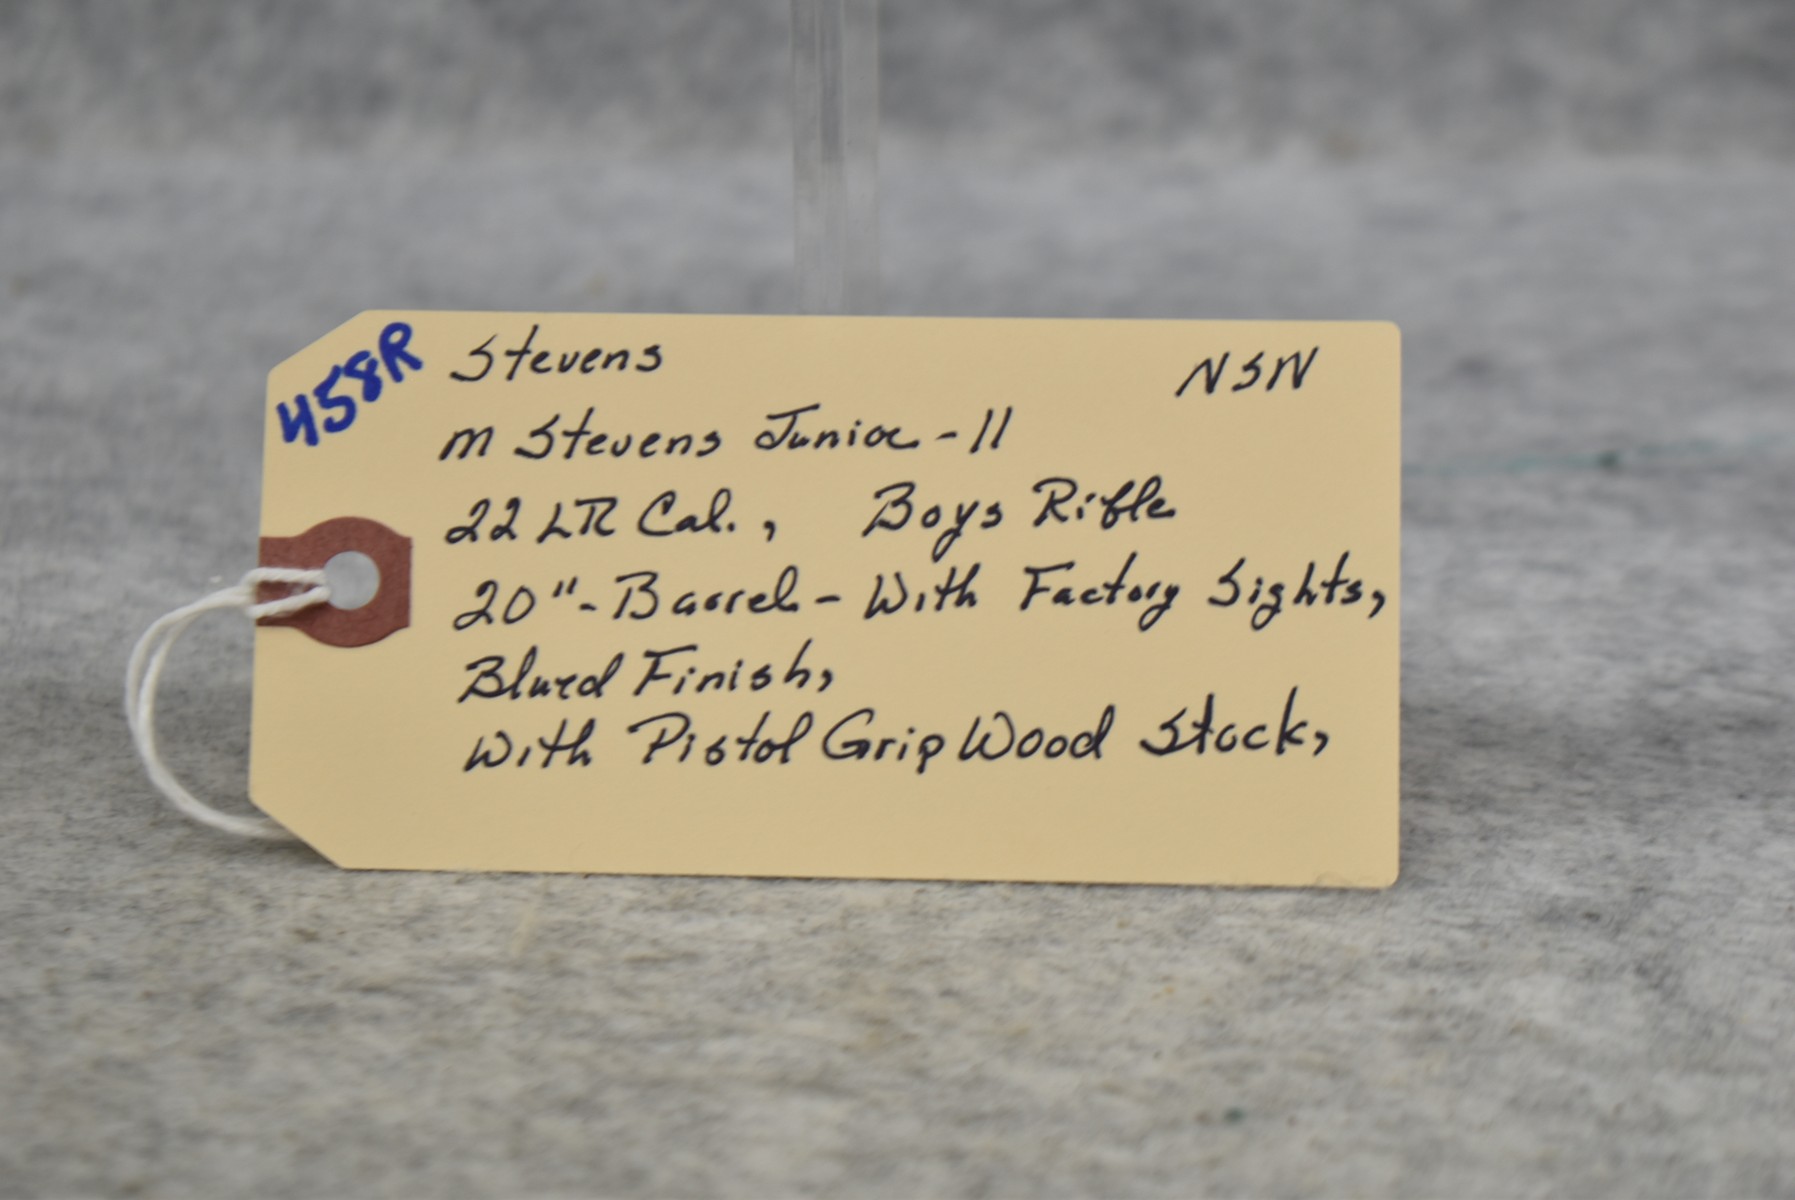 458R
Stevens NSN
M Stevens Junior - 11
22 LR Cal., Boys Rifle
20" - Barrel - With Factory Sights,
Blued Finish,
With Pistol Grip Wood Stock,